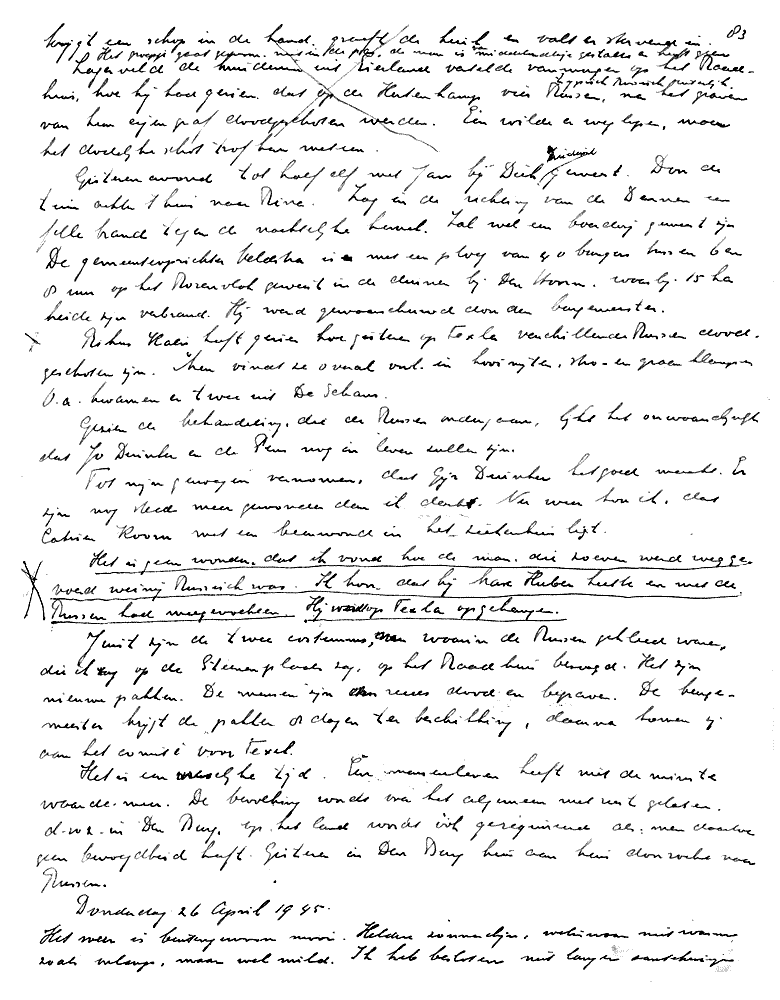 83
krijgt een schop in de hand, graaft de kuil en valt er stervende in.
Het graafje gaat gewoon. net in de pas, de man is van middelmatige gestalte en heeft geen
typisch Russisch gezicht.
Hagevild de huidenm uit Eierland vertelde vanmorgen op het Raad-
huis, hoe hij had gezien, dat op de Hutenkamp vier Russen, na het graven
van hun eigen graf doodgeschoten werden. Eén wilde er weglopen, maar
het dodelijke schot trof hem meteen.
Gisterenavond tot half elf met Jan bij Dirk Zuidewind geweest. Door de
tuin achter 't huis naar Rina. Zag in de richting van de Dennen een
felle brand tegen de nachtelijke hemel. Zal wel een boerderij geweest zijn
De gemeenteopzichter Veldstra is met een ploeg van 40 burgers tussen 6 en
8 uur op het Rozenvlak geweest in de duinen bij Den Hoorn, waarbij 15 ha
heide zijn verbrand. Hij werd gewaarschuwd door den burgemeester.
heeft gezien hoe gisteren op Texla verschillende Russen dood-
geschoten zijn. Men vindt ze overal vnl. in hooimijten, stro- en graan klampen
O.a. kwamen er twee uit De Schans.
Gezien de behandeling, die de Russen ondergaan, lijkt het onwaarschijnlijk
dat Jo Duinker en de Pens nog in leven zullen zijn.
Tot mijn genoegen vernomen, dat Gijs Duinker het goed maakt. Er
zijn nog steeds meer gewonden dan ik dacht. Nu weer hoor ik, dat
Catrien Koorn met een beenwond in het ziekenhuis ligt.
Het is geen wonder, dat ik vond hoe de man, die zoeven werd wegge-
voerd weinig Russisch was. Ik hoor dat hij Huber heette en met de
Russen had meegevochten. Hij wordt op Texla opgehangen.
Juist zijn de twee costuums, waarin de Russen gekleed waren,
die ik op de Steenenplaats zag, op het Raadhuis bezorgd. Het zijn
nieuwe pakken. De mensen zijn reeds dood en begraven. De burge-
meester krijgt de pakken 8 dagen ter beschikking, daarna komen zij
aan het comité voor Texel.
Het is een vreselijke tijd. Een mensenleven heeft niet de minste
waarde meer. De bevolking wordt over het algemeen met rust gelaten,
d.w.z. in Den Burg, op het land wordt óók gerequireerd als men daartoe
geen bevoegdheid heeft. Gisteren in Den Burg huis aan huis doorzocht naar
Russen.
Donderdag 26 April 1945.
Het weer is buitengewoon mooi. Heldere zonneschijn, weliswaar niet warm,
zoals onlangs, maar wel mild. Ik heb besloten niet langer